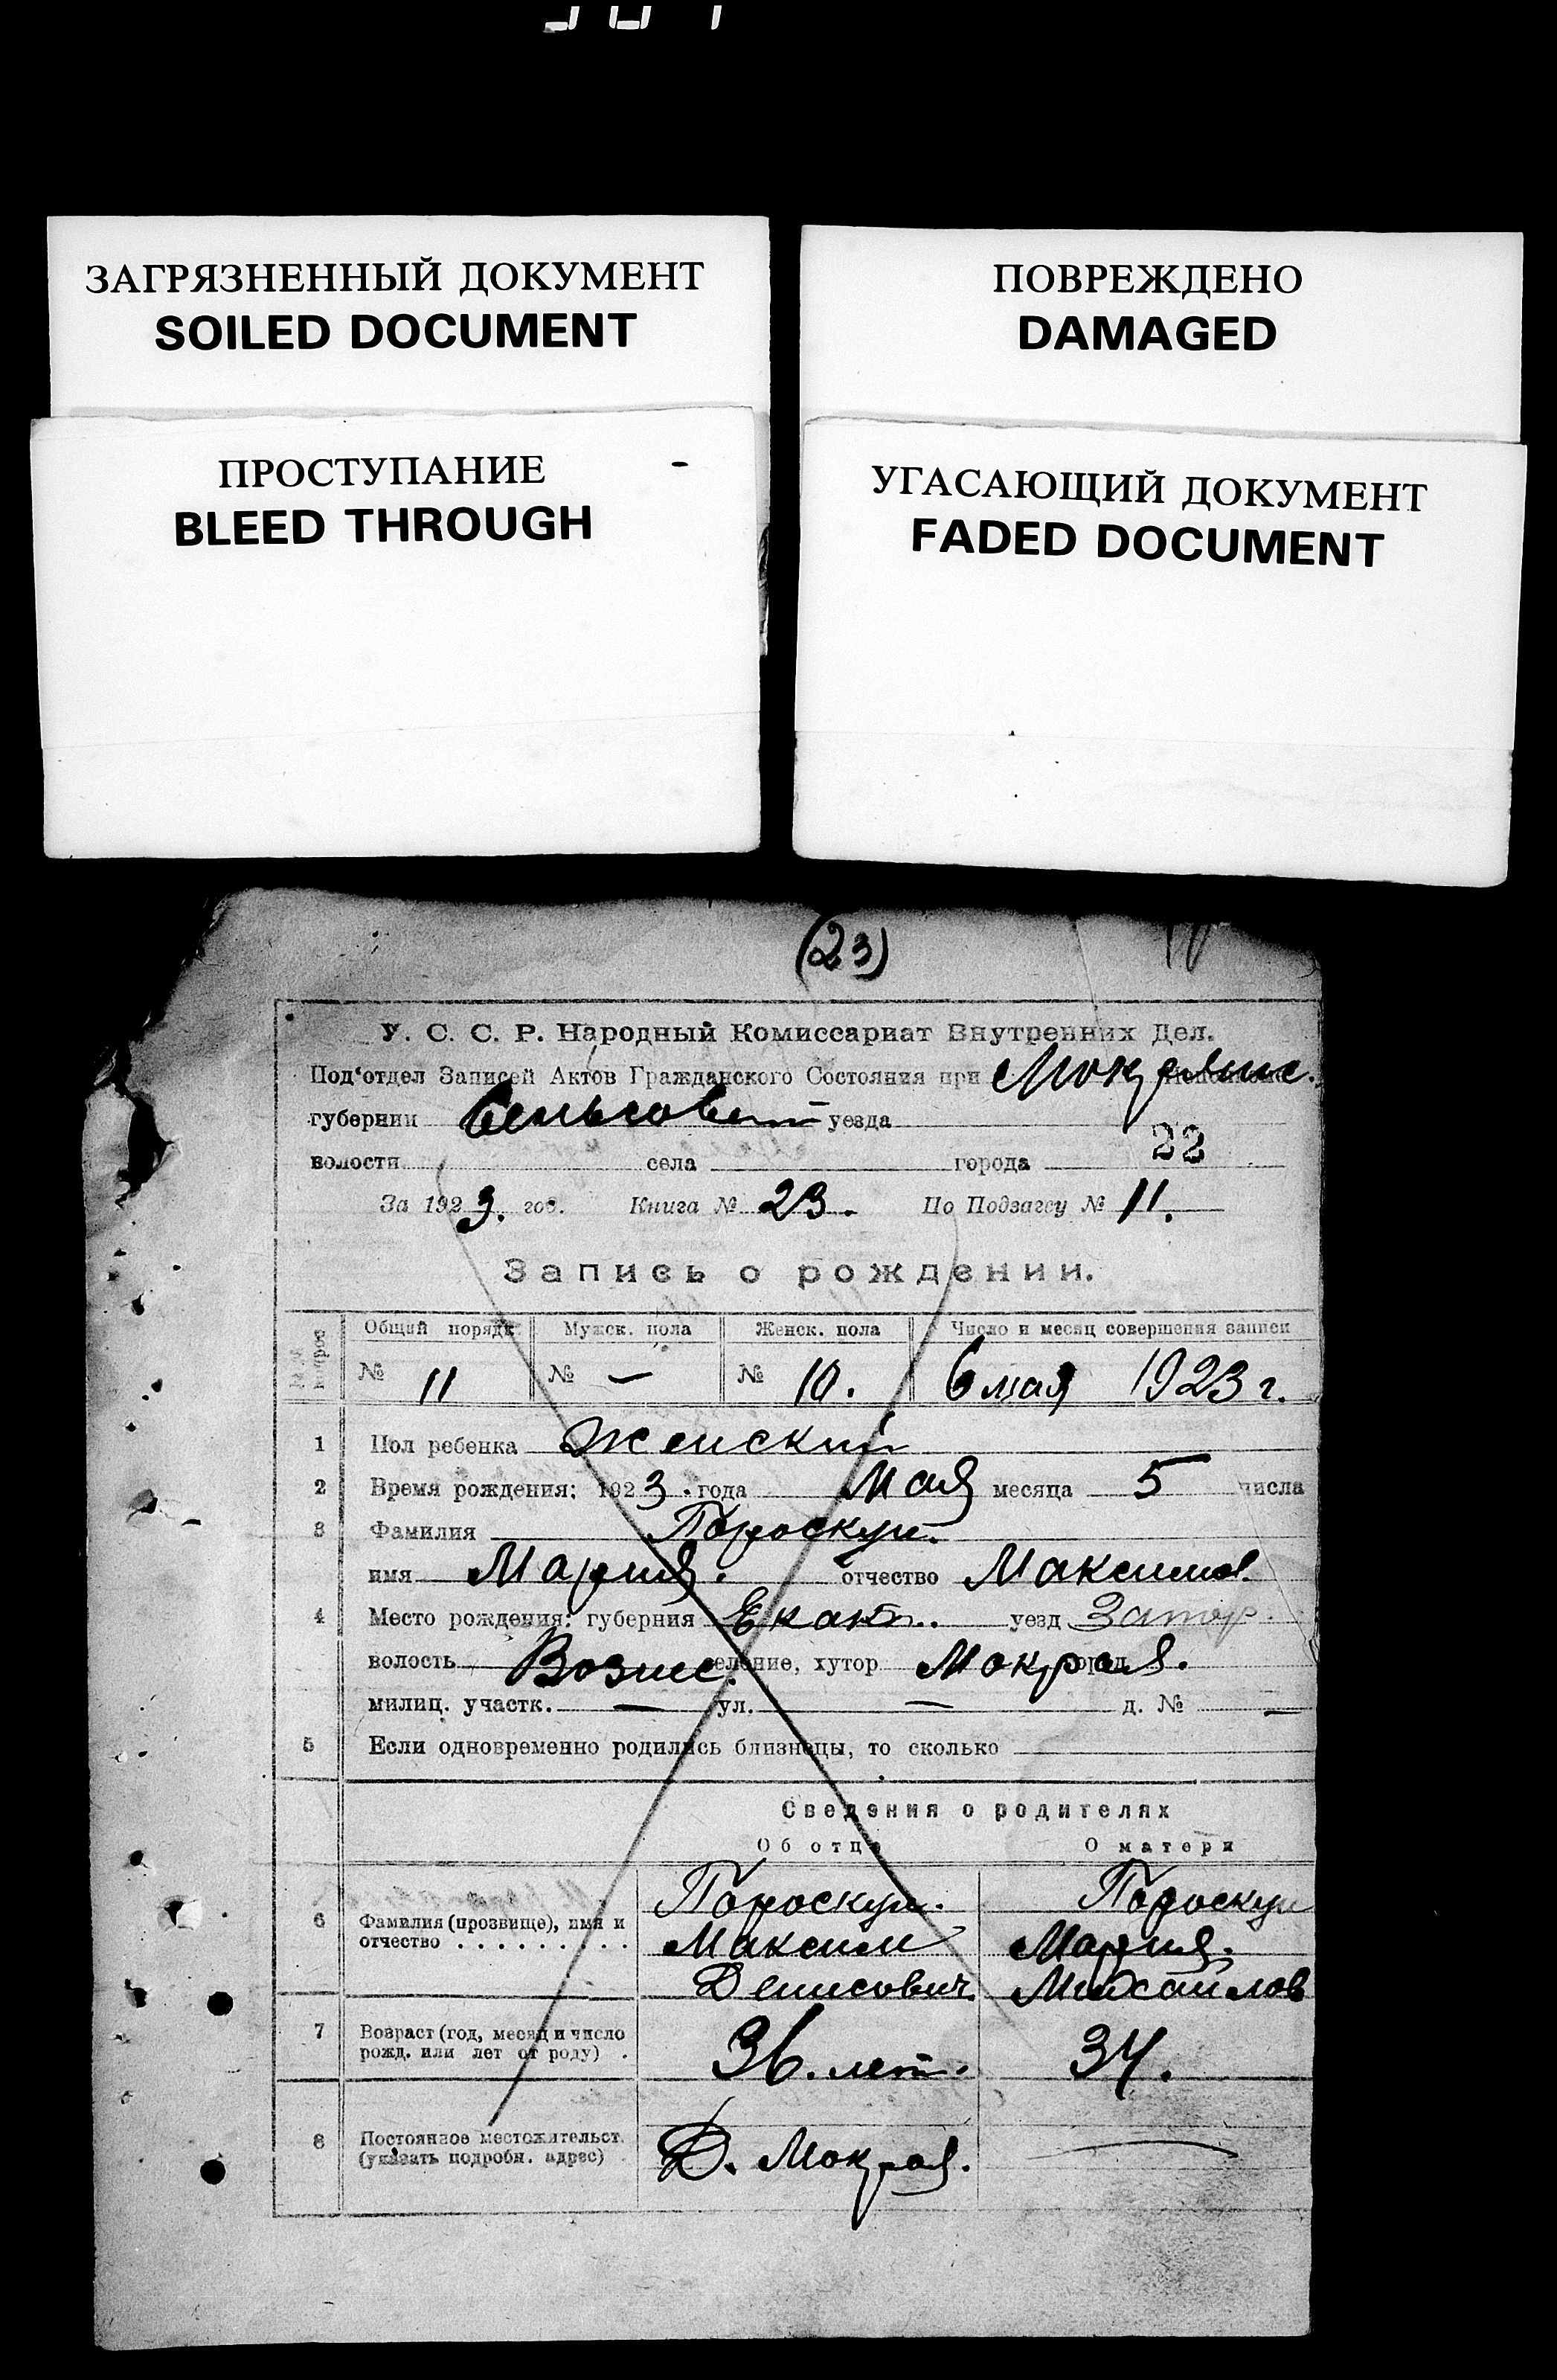 ЗАГРЯЗНЕННЫЙ ДОКУМЕНТ
SOILED DOCUMENT
ПОВРЕЖДЕНО
DAMAGED
ПРОСТУПАНИЕ
BLEED THROUGH
УГАСАЮЩИЙ ДОКУМЕНТ
FADED DOCUMENT
(23)
У. С. С. Р. Народный Комиссариат Внутренних Дел.
Под'отдел Записей Актов Гражданского Состояния при Мокрянс.
губернии Сельсовет уезда
волости села города 22
За 1923. год. Книга № 23. По Подзагсу № 11.
Запись о рождении.
Общий порядк. Мужск. пола Женск. пола Число и месяц совершения записи
№ 11 № — № 10. 6 мая 1923 г.
1 Пол ребенка Женский
2 Время рождения: 1923. года Мая месяца 5 числа
3 Фамилия Пороскун.
имя Мария. отчество Максимов.
4 Место рождения: губерния Екат.. уезд Запор.
волость Вознес. селение, хутор Мокрая.
милиц. участк. — ул. — д. № —
5 Если одновременно родились близнецы, то сколько
Сведения о родителях
Об отце О матери
6 Фамилия (прозвище), имя и отчество . . . . . . . . . Пороскун. Пороскун
Максим Мария.
Денисович. Михайлов
7 Возраст (год, месяц и число рожд. или лет от роду) . 36. лет. 34.
8 Постоянное местожительст. (указать подробн. адрес) Д. Мокрая. —